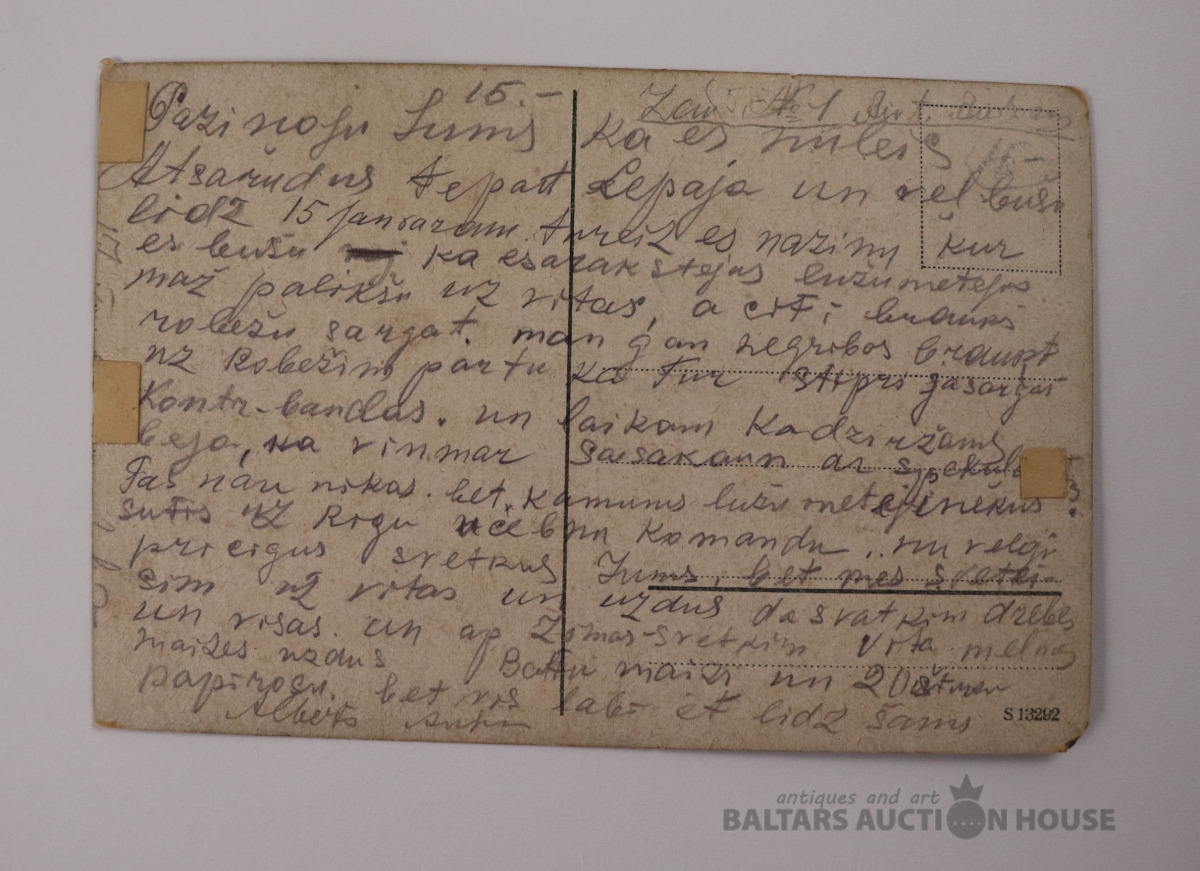 15.-
№ 1
Paziņoju Jums ka es
Atsarūdus tepatt Lepaja un vel bušu
lidz 15 janvaram. tureiz es nazinu kur
es bušu ka esarakstejus ložumetejos
maž palikšu uz vitas, a citi brauks
robežu sargat. man jau negribas braukt
uz Robežim partu ka tur stipri jasargas
Kontr-bandas. un laikam Kadziržams
beja, ka vinmar
Tas nau nikas. bet. kamums
sutis uz Rigu učebnu Komandu .. nu velgi
pricigus svetkus Jums, bet mes svetki
sim uz vitas un uzdus da svatkim drebes
un visas. un ap Zimas-svetkim vita melnas
maizes uzdus Baltu maizi un 20
papirosu. bet vis labi et lidz šams
Alberts
S 13292
antiques and art
BALTARS AUCTION HOUSE